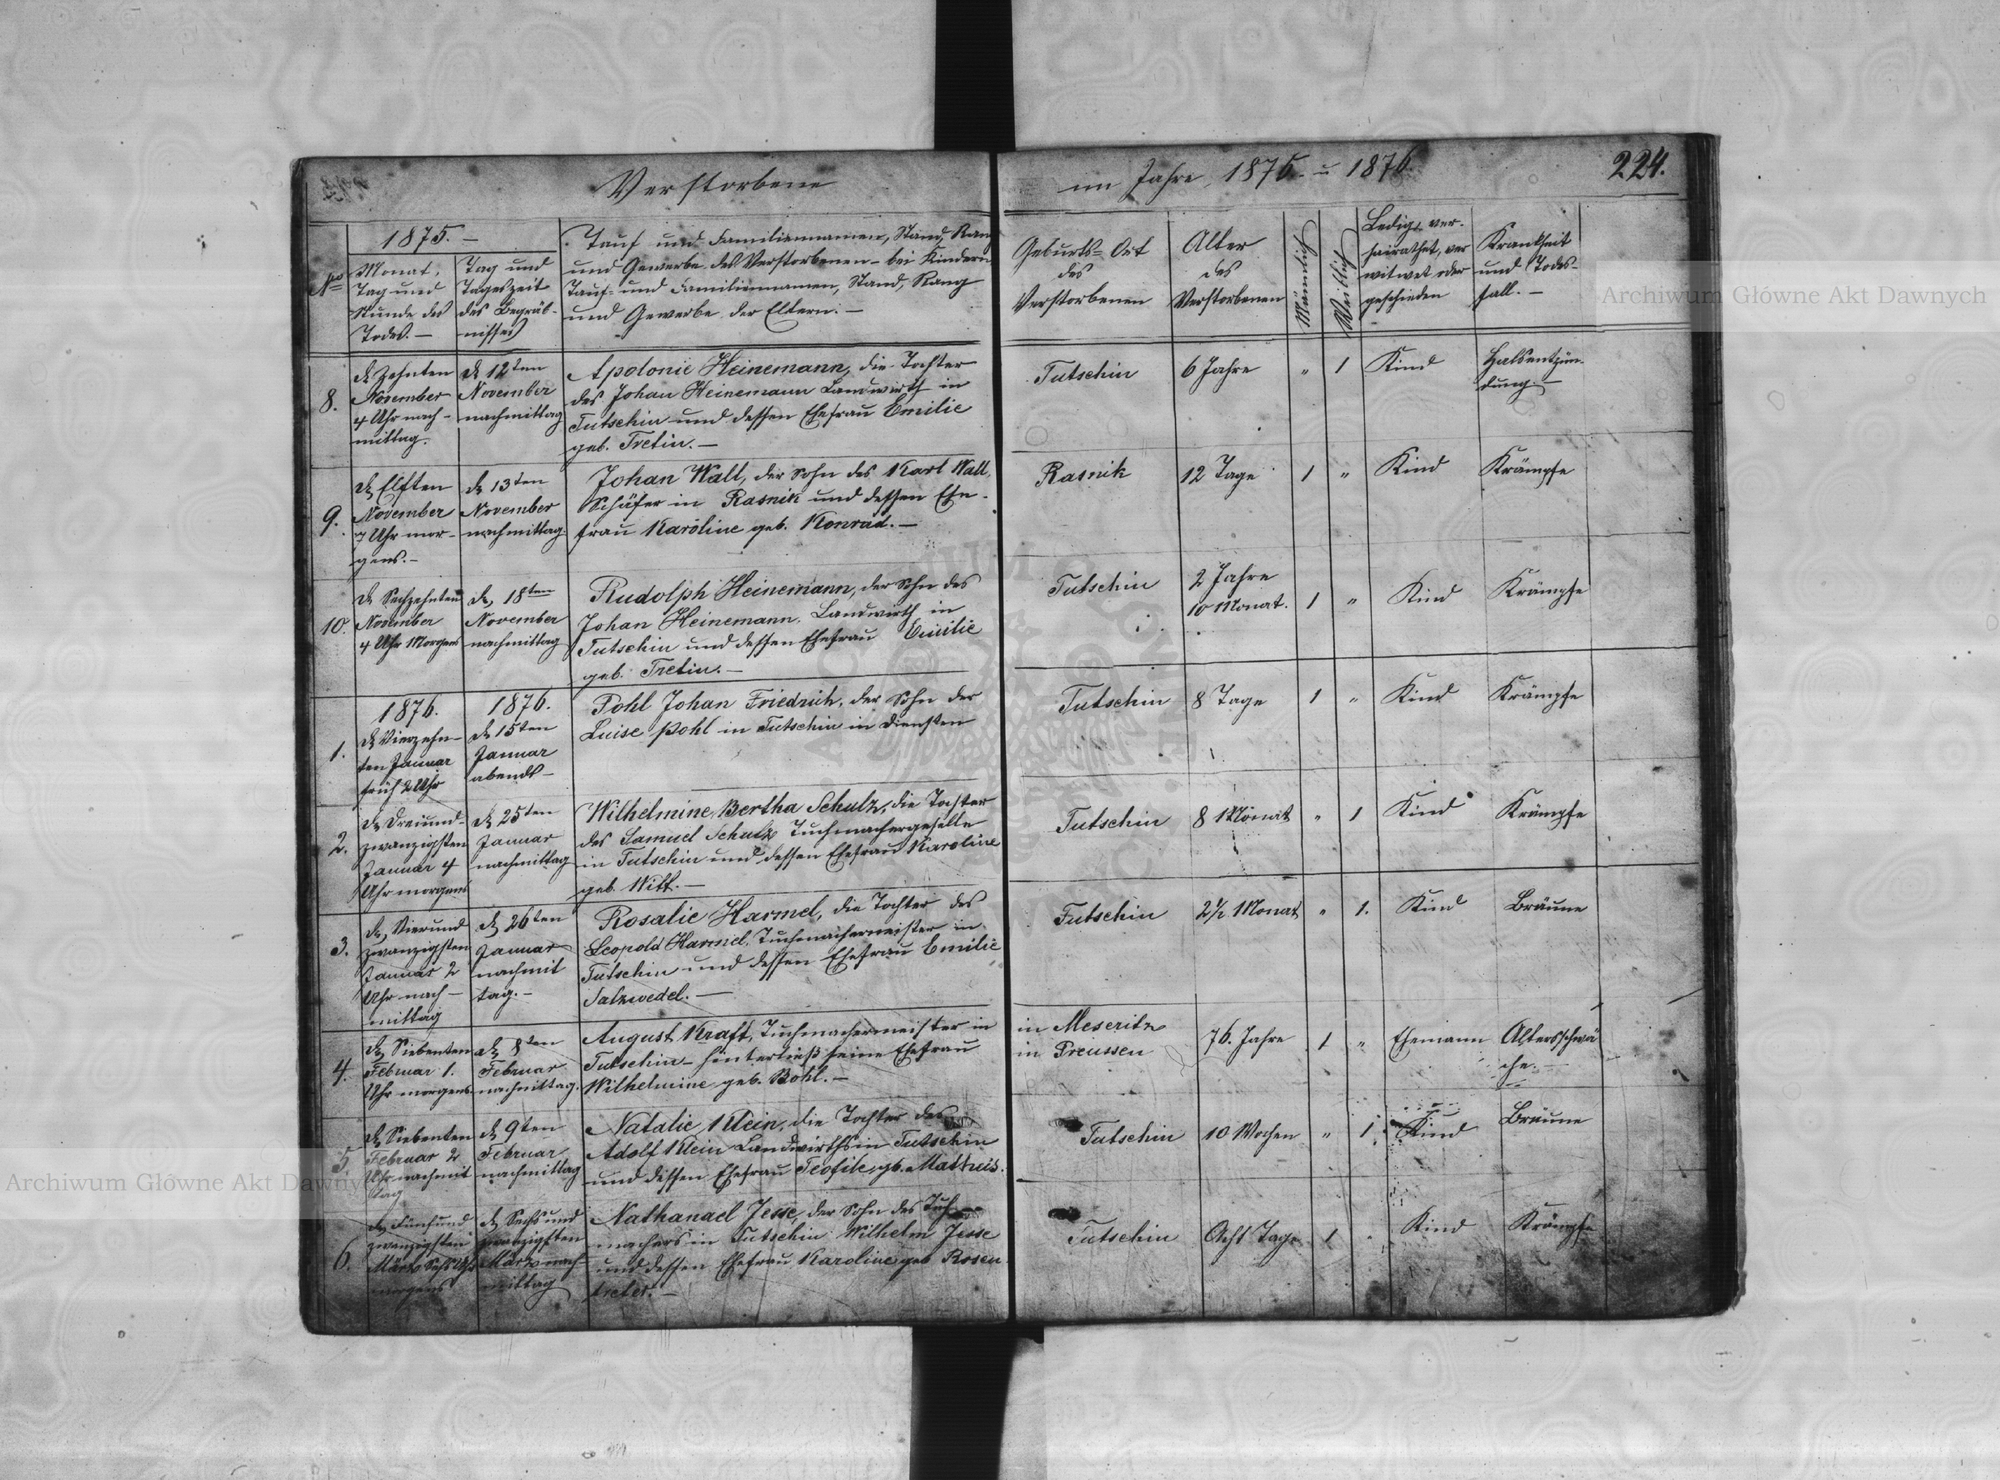 Verstorbene
im Jahre 1875. u 1876.
224.
1875. —
No
Monat, Tag und Stunde des Todes. —
Tag und Tageszeit des Begräbnisses
Tauf und Familiennamen, Stand, Rang
und Gewerbe des Verstorbenen – bei Kindern
Tauf- und Familiennamen, Stand, Rang
und Gewerbe der Eltern. —
Geburts-Ort
des
Verstorbenen
Alter
des
Verstorbenen
Männlich
Weiblich
Ledig, ver-
heirathet, ver
witwet oder
geschieden
Krankheit
und Todes-
fall. —
8.
d. Zehnten
November
4 Uhr nach-
mittag.
d. 12ten
November
nachmittag
Apolonie Heinemann, die Tochter
des Johan Heinemann Landwirth in
Tutschin und dessen Ehefrau Emilie
geb. Tretin. —
Tutschin
6 Jahre
„
1
Kind
Halsentzün-
dung. —
9.
d. Elften
November
7 Uhr mor-
gens. —
d. 13ten
November
nachmittag
Johan Wall, der Sohn des Karl Wall,
Schäfer in Rasnik und dessen Ehe-
frau Karoline geb. Konrad. —
Rasnik
12 Tage
1
„
Kind
Krämpfe
10.
d. Sechzehnten
November
4 Uhr Morgens
d. 18ten
November
nachmittag
Rudolph Heinemann, der Sohn des
Johan Heinemann, Landwirth in
Tutschin und dessen Ehefrau Emilie
geb. Tretin. —
Tutschin
2 Jahre
10 Monat.
1
„
Kind
Krämpfe
1.
1876.
d. Vierzehn-
ten Januar
früh 2 Uhr
1876.
d. 15ten
Januar
abends —
Pohl Johan Friedrich, der Sohn der
Luise Pohl in Tutschin in Diensten
Tutschin
8 Tage
1
„
Kind
Krämpfe
2.
d. Dreiund-
zwanzigsten
Januar 4
Uhr morgens
d. 25ten
Januar
nachmittag
Wilhelmine, Bertha Schulz, die Tochter
des Samuel Schulz Tuchmachergeselle
in Tutschin und dessen Ehefrau Karoline
geb. Witt. —
Tutschin
8 Monat
„
1
Kind
Krämpfe
3.
d. Vierund
zwanzigsten
Januar 2
Uhr nach-
mittag
d. 26ten
Januar
nachmit
tag. —
Rosalie Harmel, die Tochter des
Leopold Harmel, Tuchmachermeister in
Tutschin und dessen Ehefrau Emilie
Salzwedel. —
Tutschin
2½ Monat
„
1.
Kind
Bräune
4.
d. Siebenten
Februar 1.
Uhr morgens
d. 8ten
Februar
nachmittag.
August Kraft, Tuchmachermeister in
Tutschin – hinterließ seine Ehefrau
Wilhelmine geb. Bohl. —
in Meseritz
in Preussen
76. Jahre
1
„
Ehemann
Altersschwä
che. —
5.
d. Siebenten
Februar 2
Uhr nachmit
tag
d. 9ten
Februar
nachmittag
Natalie Klein, die Tochter des
Adolf Klein Landwirths in Tutschin
und dessen Ehefrau Teofile, gb. Matheis.
Tutschin
10 Wochen
„
1.
Kind
Bräune
6.
d. Fünfund
zwanzigsten
März Sechs Uhr
morgens
d. Sechsund
zwanzigsten
März nach
mittag
Nathanael Jesse, der Sohn des Tuch
machers in Tutschin Wilhelm Jesse
und dessen Ehefrau Karoline geb Rosen
treter. —
Tutschin
Acht Tage
1
Kind
Krämpfe
Archiwum Główne Akt Dawnych
Archiwum Główne Akt Dawnych